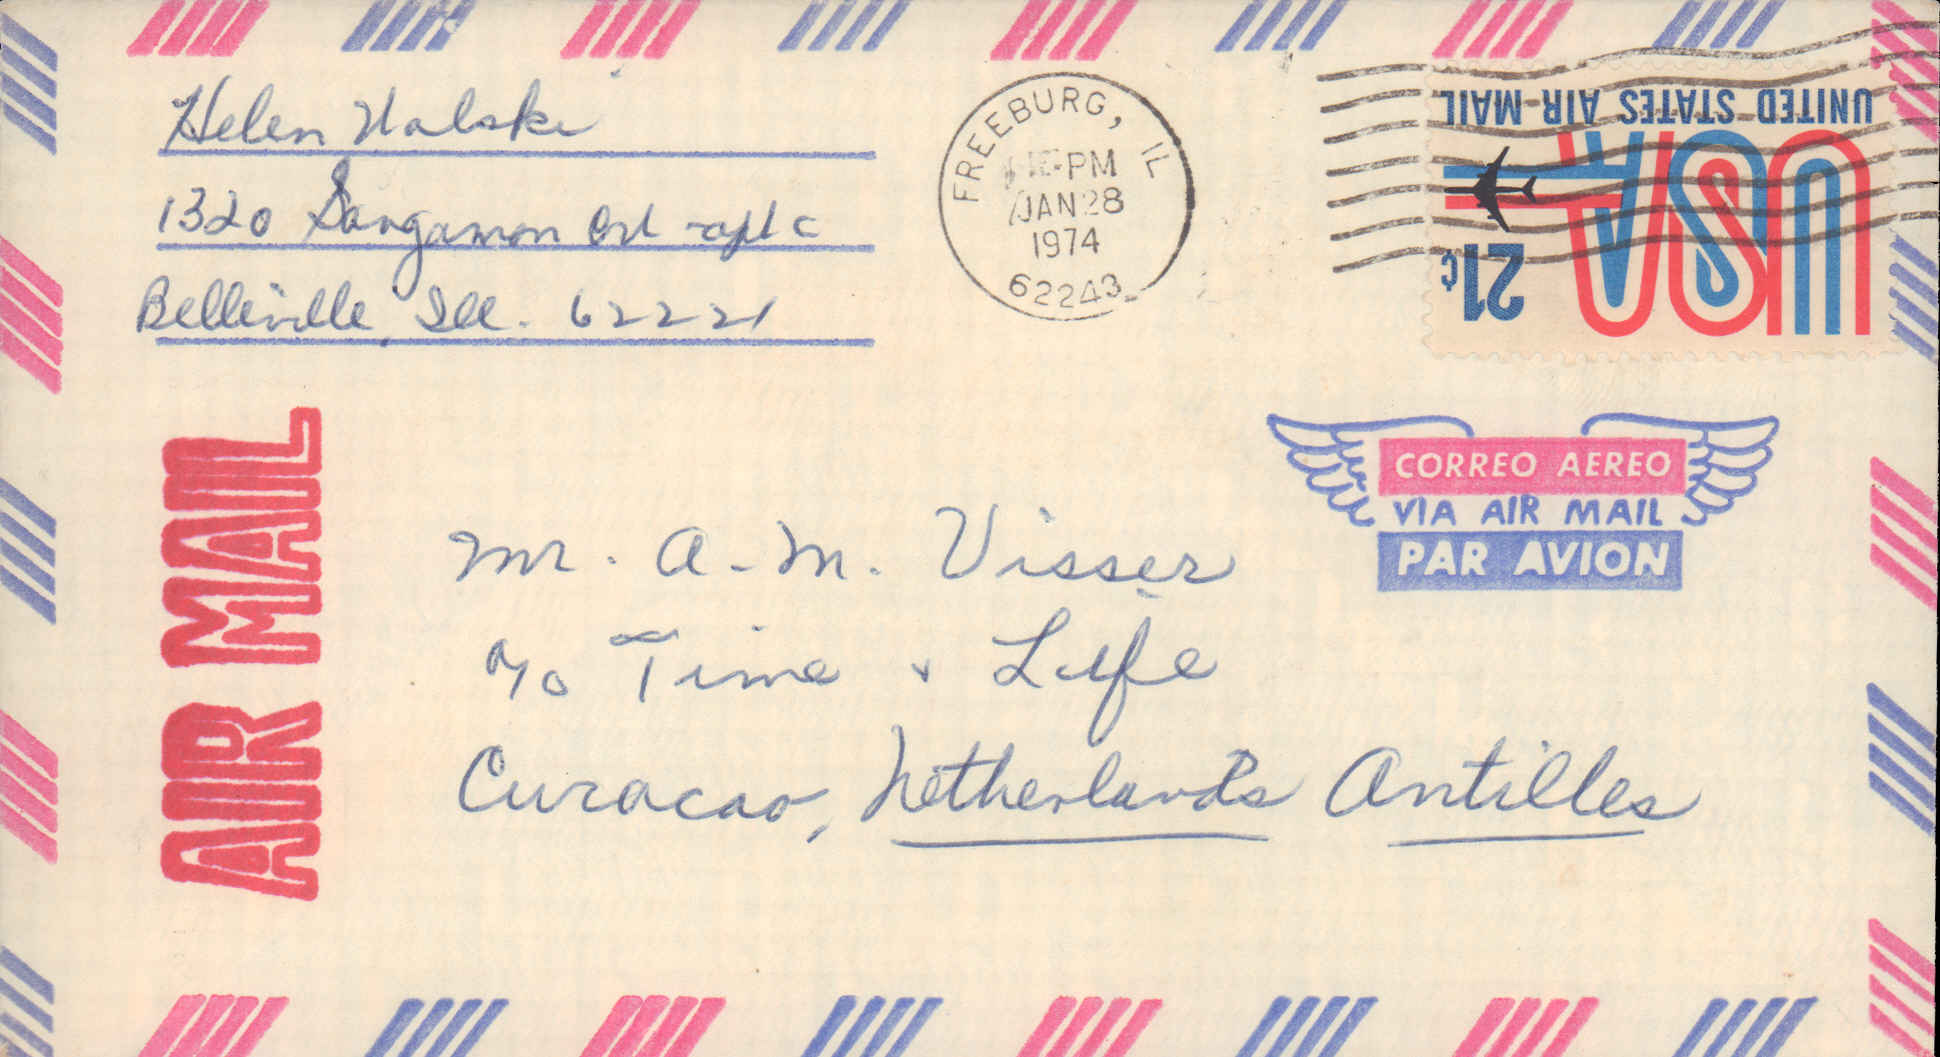 Helen Walski
1320 Sangamon Crt - apt c
Belleville, Ill. 62221
FREEBURG, IL
PM
JAN 28
1974
62243
UNITED STATES AIR MAIL
USA
21¢
AIR MAIL
CORREO AEREO
VIA AIR MAIL
PAR AVION
Mr. A. M. Visser
c/o Time & Life
Curacao, Netherlands Antilles